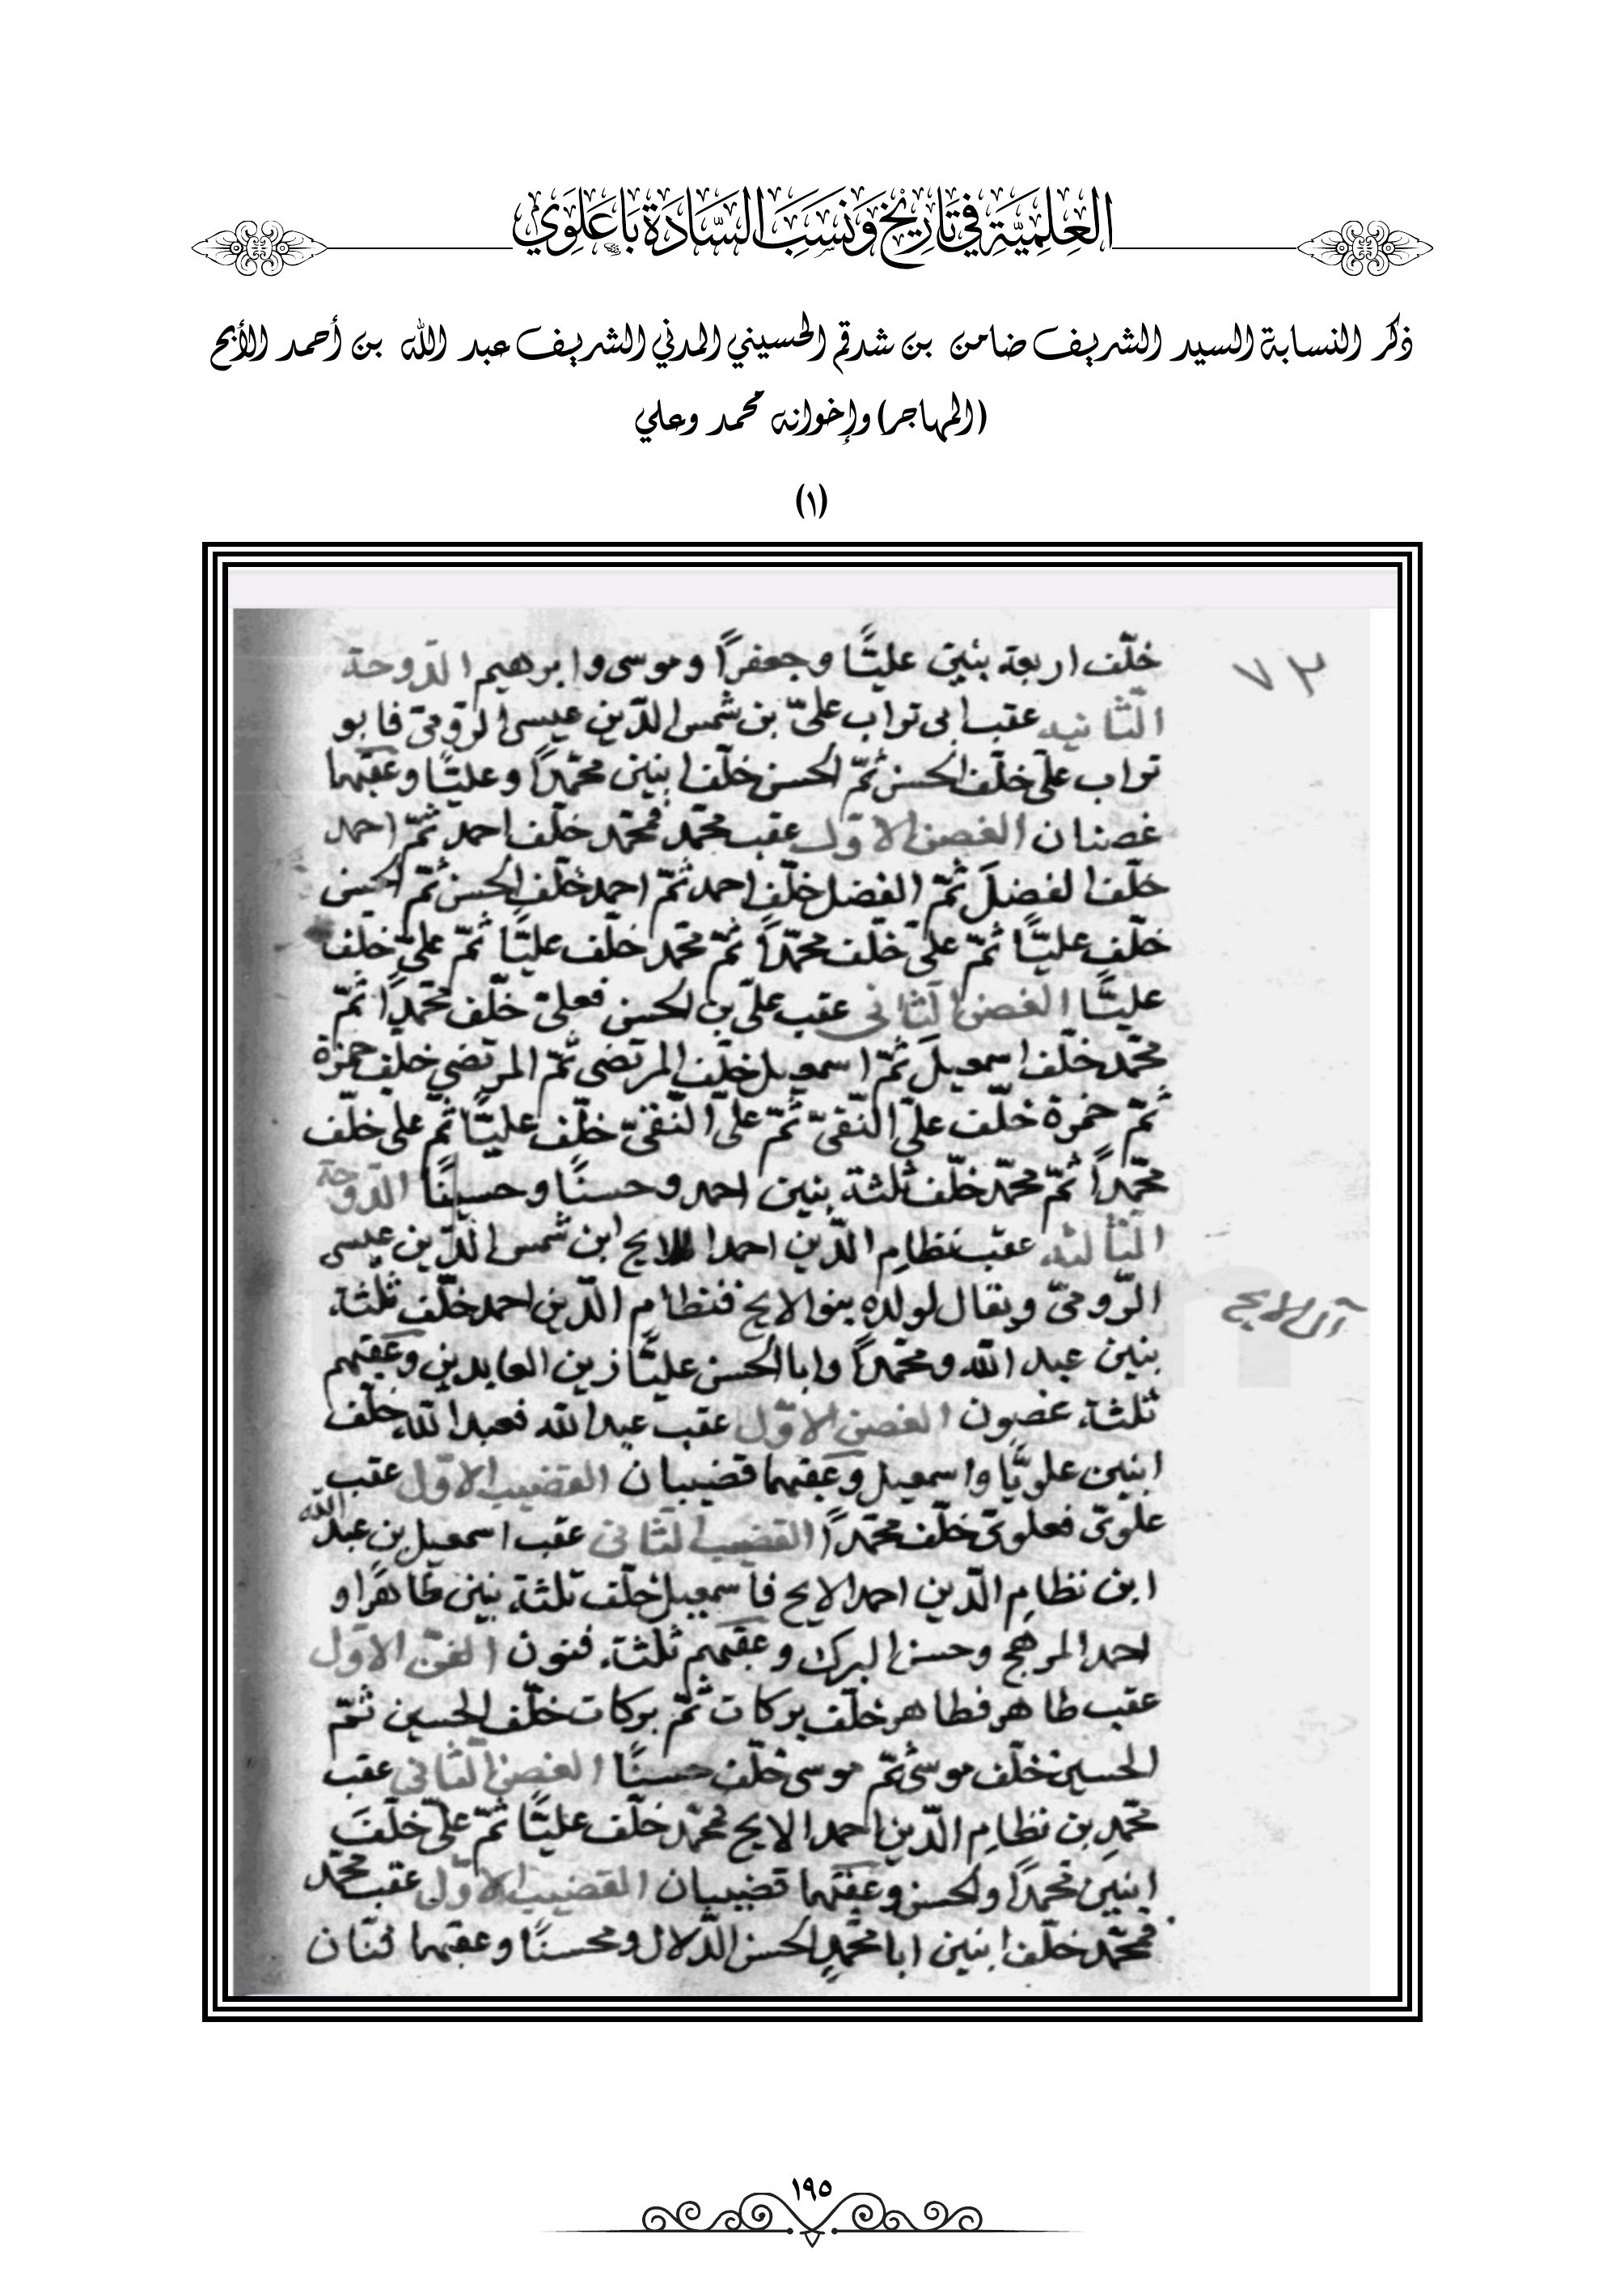 العِلْمِيَّةِ فِي تَارِيْخِ وَنَسَبِ السَّادَةِ بَاعَلَوِي
ذكر النسابة السيد الشريف ضامن بن شدقم الحسيني المدني الشريف عبد الله بن أحمد الأبح
(المهاجر) وإخوانه محمد وعلي
(١)
٧٣
خلّف اربعة بنين عليًّا وجعفرًا وموسى وابرهيم الدّوحة
الثّانيه عقب ابى تراب علىّ بن شمس الدّين عيسى الرّومىّ فابو
تراب علىّ خلّف الحسن ثمّ الحسن خلّف ابنين محمّدًا وعليًّا وعقبهما
غصنان الغصن الاوّل عقب محمّد فمحمّد خلّف احمد ثمّ احمد
خلّف الفضلَ ثمّ الفضل خلّف احمد ثمّ احمد خلّف الحسن ثمّ الحسن
خلّف عليًّا ثمّ علىّ خلّف محمّدًا ثمّ محمّد خلّف عليًّا ثمّ علىّ خلّف
عليًّا الغصن الثّانى عقب علىّ بن الحسن فعلىّ خلّف محمّدًا ثمّ
محمّد خلّف اسمعيلَ ثمّ اسمعيل خلّف المرتضى ثمّ المرتضى خلّف حمزة
ثمّ حمزة خلّف علىّ النّقىّ ثمّ علىّ النّقىّ خلّف عليًّا ثمّ على خلّف
محمّدًا ثمّ محمّد خلّف ثلثة بنين احمد وحسنًا وحسينًا الدّوحة
الثّالثه عقب نظام الدّين احمد الابح ابن شمس الدّين عيسى
الرّومىّ ويقال لولده بنو الابح فنظام الدّين احمد خلّف ثلثة
آل الابح
بنين عبد الله ومحمّدًا وابا الحسن عليًّا زين العابدين وعقبهم
ثلثة غصون الغصن الاوّل عقب عبد الله فعبد الله خلّف
ابنين علويًّا واسمعيل وعقبهما قضيبان القضيب الاوّل عقب
علوىّ فعلوىّ خلّف محمّدًا القضيب الثّانى عقب اسمعيل بن عبد الله
ابن نظام الدّين احمد الابح فاسمعيل خلّف ثلثة بنين طاهرًا و
احمد المرهج وحسن البرك وعقبهم ثلثة فنون الفنّ الاوّل
عقب طاهر فطاهر خلّف بركات ثمّ بركات خلّف الحسين ثمّ
الحسين خلّف موسى ثمّ موسى خلّف حسنًا الغصن الثّانى عقب
محمّد بن نظام الدّين احمد الابح فمحمّد خلّف عليًّا ثمّ علىّ خلّفَ
ابنين محمدًا والحسن وعقبهما قضيبان القضيب الاوّل عقب محمّد
فمحمّد خلّف ابنين ابا محمّدٍ الحسن الدّلال ومحسنًا وعقبهما فنّان
١٩٥